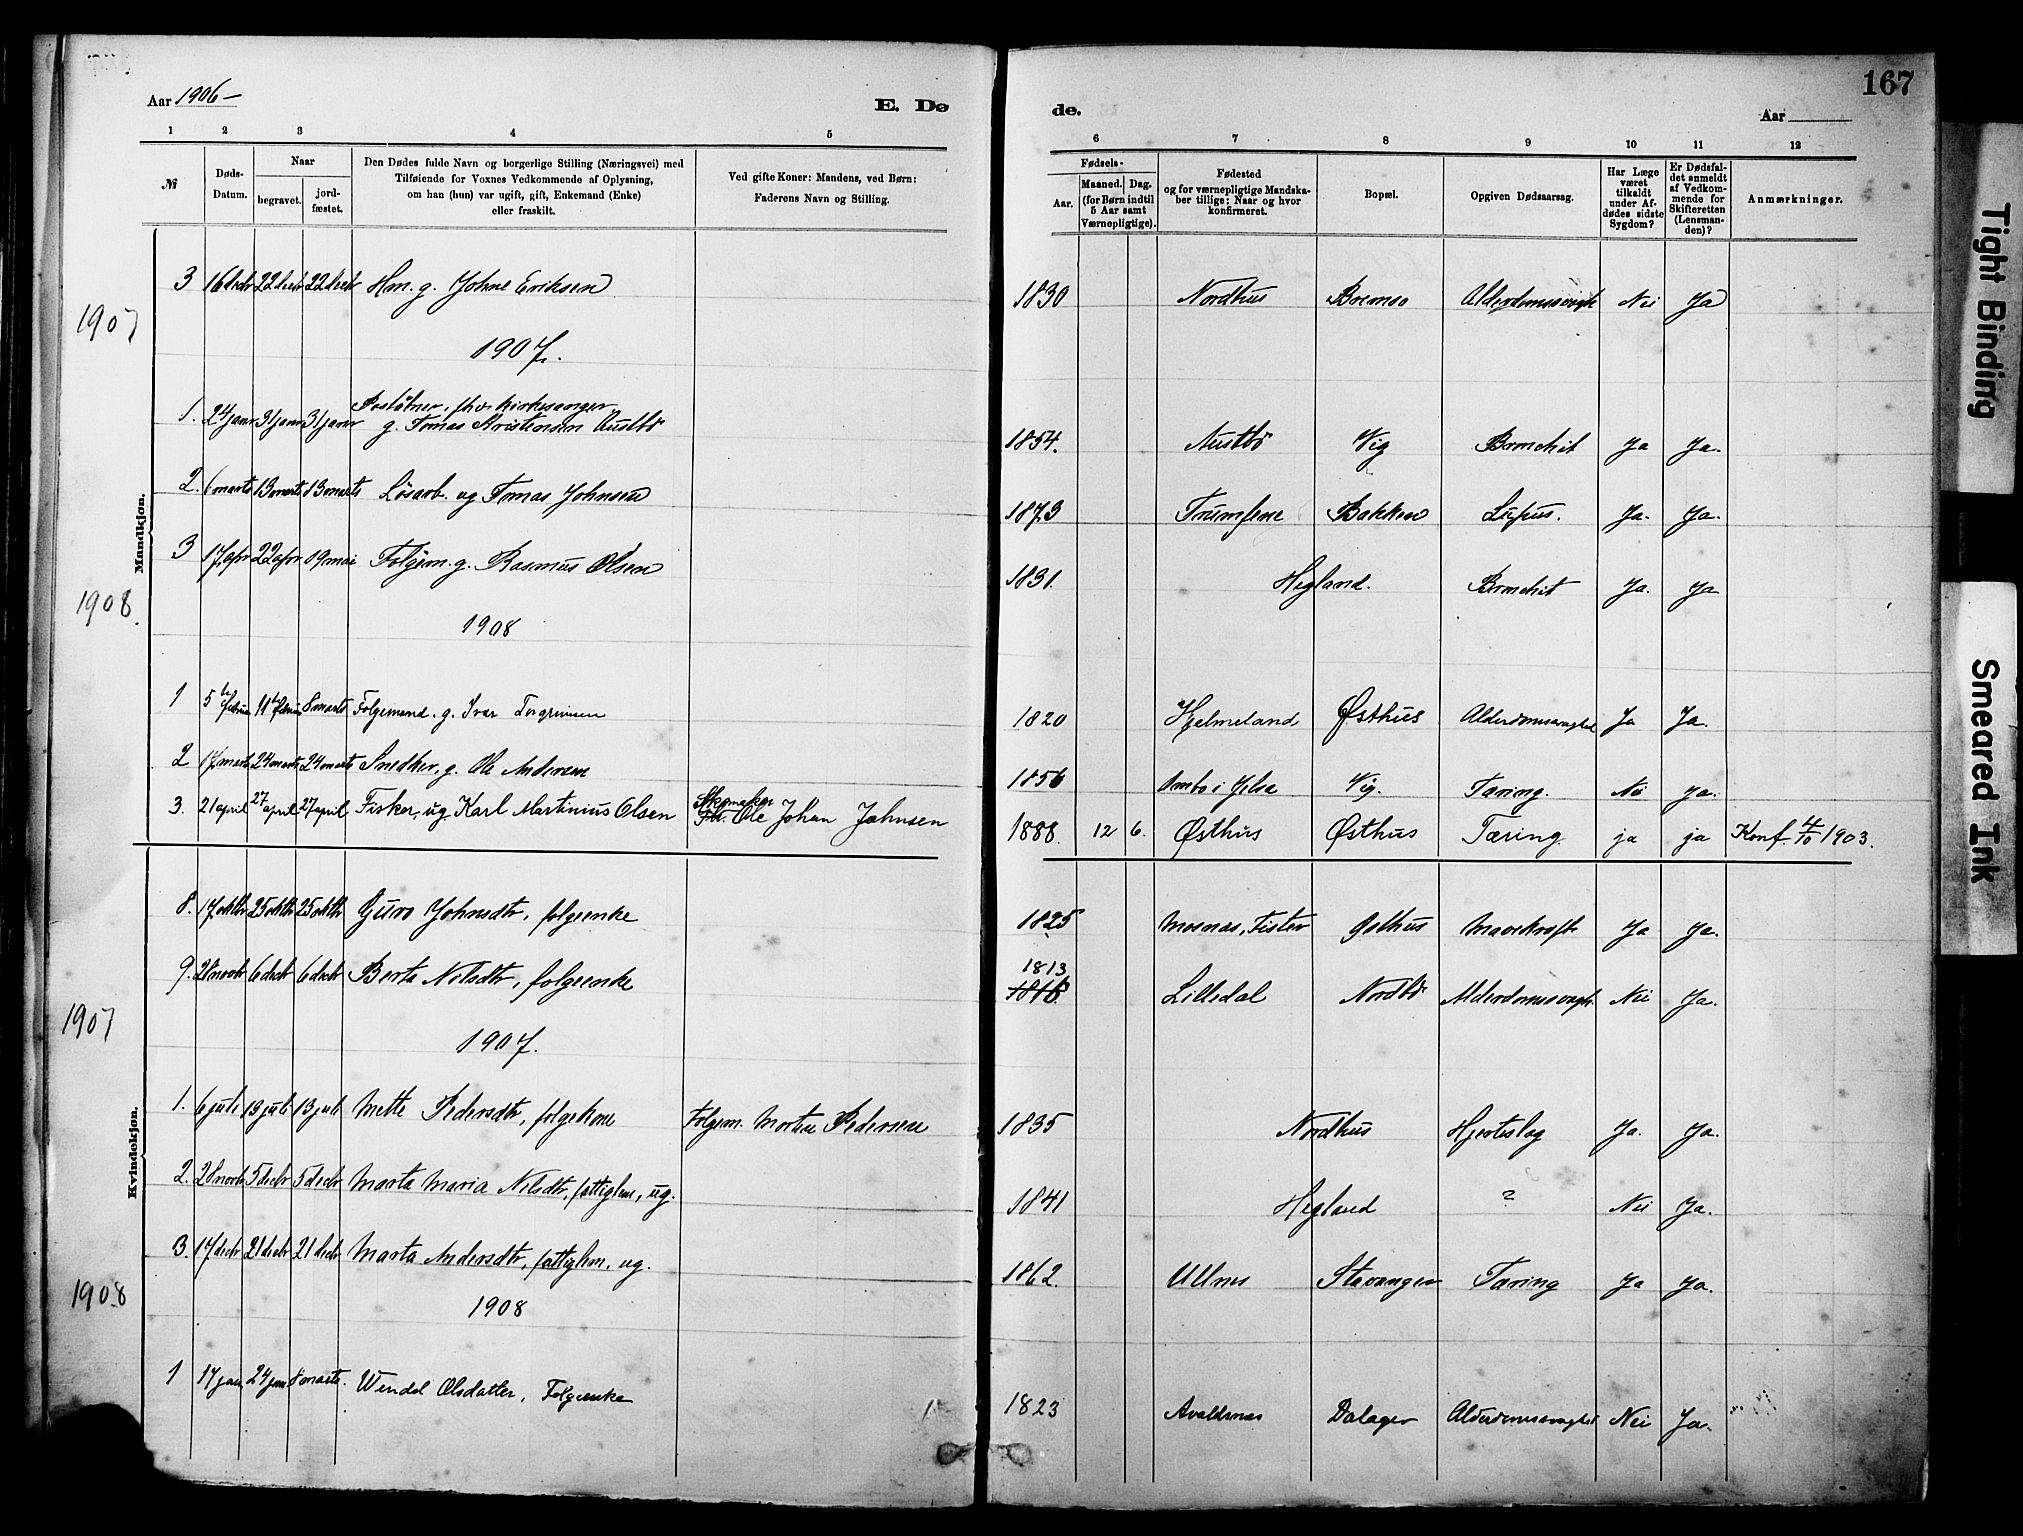 167
Aar 1906-
E. Dø
de.
Aar
1 2 3 4 5 6 7 8 9 10 11 12
№
Døds-Datum.
Naar
begravet.
jord-fæstet.
Den Dødes fulde Navn og borgerlige Stilling (Næringsvei) med
Tilføiende for Voxnes Vedkommende af Oplysning,
om han (hun) var ugift, gift, Enkemand (Enke)
eller fraskilt.
Ved gifte Koner: Mandens, ved Børn:
Faderens Navn og Stilling.
Fødsels-
Aar.
Maaned. Dag.
(for Børn indtil
5 Aar samt
Værnepligtige).
Fødested
og for værnepligtige Mandska-
ber tillige: Naar og hvor
konfirmeret.
Bopæl.
Opgiven Dødsaarsag.
Har Læge
været
tilkaldt
under Af-
dødes sidste
Sygdom?
Er Dødsfal-
det anmeldt
af Vedkom-
mende for
Skifteretten
(Lensman-
den)?
Anmærkninger.
Mandkjøn.
3 16 decbr 22 decbr 22 decbr Hm. g. Johne Eriksen 1830 Nordhus Nei Ja
1907
1907.
1. 24 janr 31 janr 31 janr Postaabner, fhv. kirkesanger
g. Tomas Kristensen Austbø 1854. Austbø Vig Bronchit Ja Ja.
2. 6 marts 13 marts 13 marts Løsarb. ug Tomas Johnsen 1873 Bakken Lupus. Ja. Ja.
3 17 apr 22 apr 19 mai Folgem. g. Rasmus Olsen 1831. Hegland. Bronchit Ja. Ja
1908.
1908
1 5te februar 11te februar 8 marts Folgemand. g. Ivar Torgrimsen 1820 Hjelmeland Østhus Alderdomssvaghed Ja Ja.
2 17 marts 24 marts 24 marts Snedker, g. Ole Andersen 1856 Ombo i Jelsa Vig. Tæring. Nei Ja.
3. 21 april 27 april 27 april Fisker, ug Karl Martinius Olsen Skomaker Ole Johan Johnsen 1888. 12 6. Østhus Østhus Tæring. ja ja Konf. 4/10 1903.
Kvindekjøn.
8. 17 oktbr 25 oktbr 25 oktbr Guro Johnsdtr, folgeenke 1825 Mosnæs, Fister Østhus Mavekræft Ja Ja.
9. 28 novbr 6 decbr 6 decbr Berta Nilsdtr, folgeenke 1813 Lilledal Nordbø Alderdomssvagh. Nei Ja.
1907
1907.
1. 6 juli 13 juli 13 juli Mette Pedersdtr, folgekone Folgem. Morten Pedersen 1835 Nordhus Hjerteslag Ja. Ja.
2. 28 novbr 5 decbr 5 decbr Marta Maria Nilsdtr, fattiglem, ug. 1841 Hegland ? Nei Ja.
3. 17 decbr 21 decbr 21 decbr Marta Andersdtr, fattiglem, ug. 1862. Ullnes Stavanger Tæring Ja Ja.
1908
1908
1 17 jan 24 jan 8 marts. Wendel Olsdatter, Folgeenke 1823 Avaldsnæs Dalager Alderdomssvaghed Nei Ja.
Tight Binding
Smeared Ink